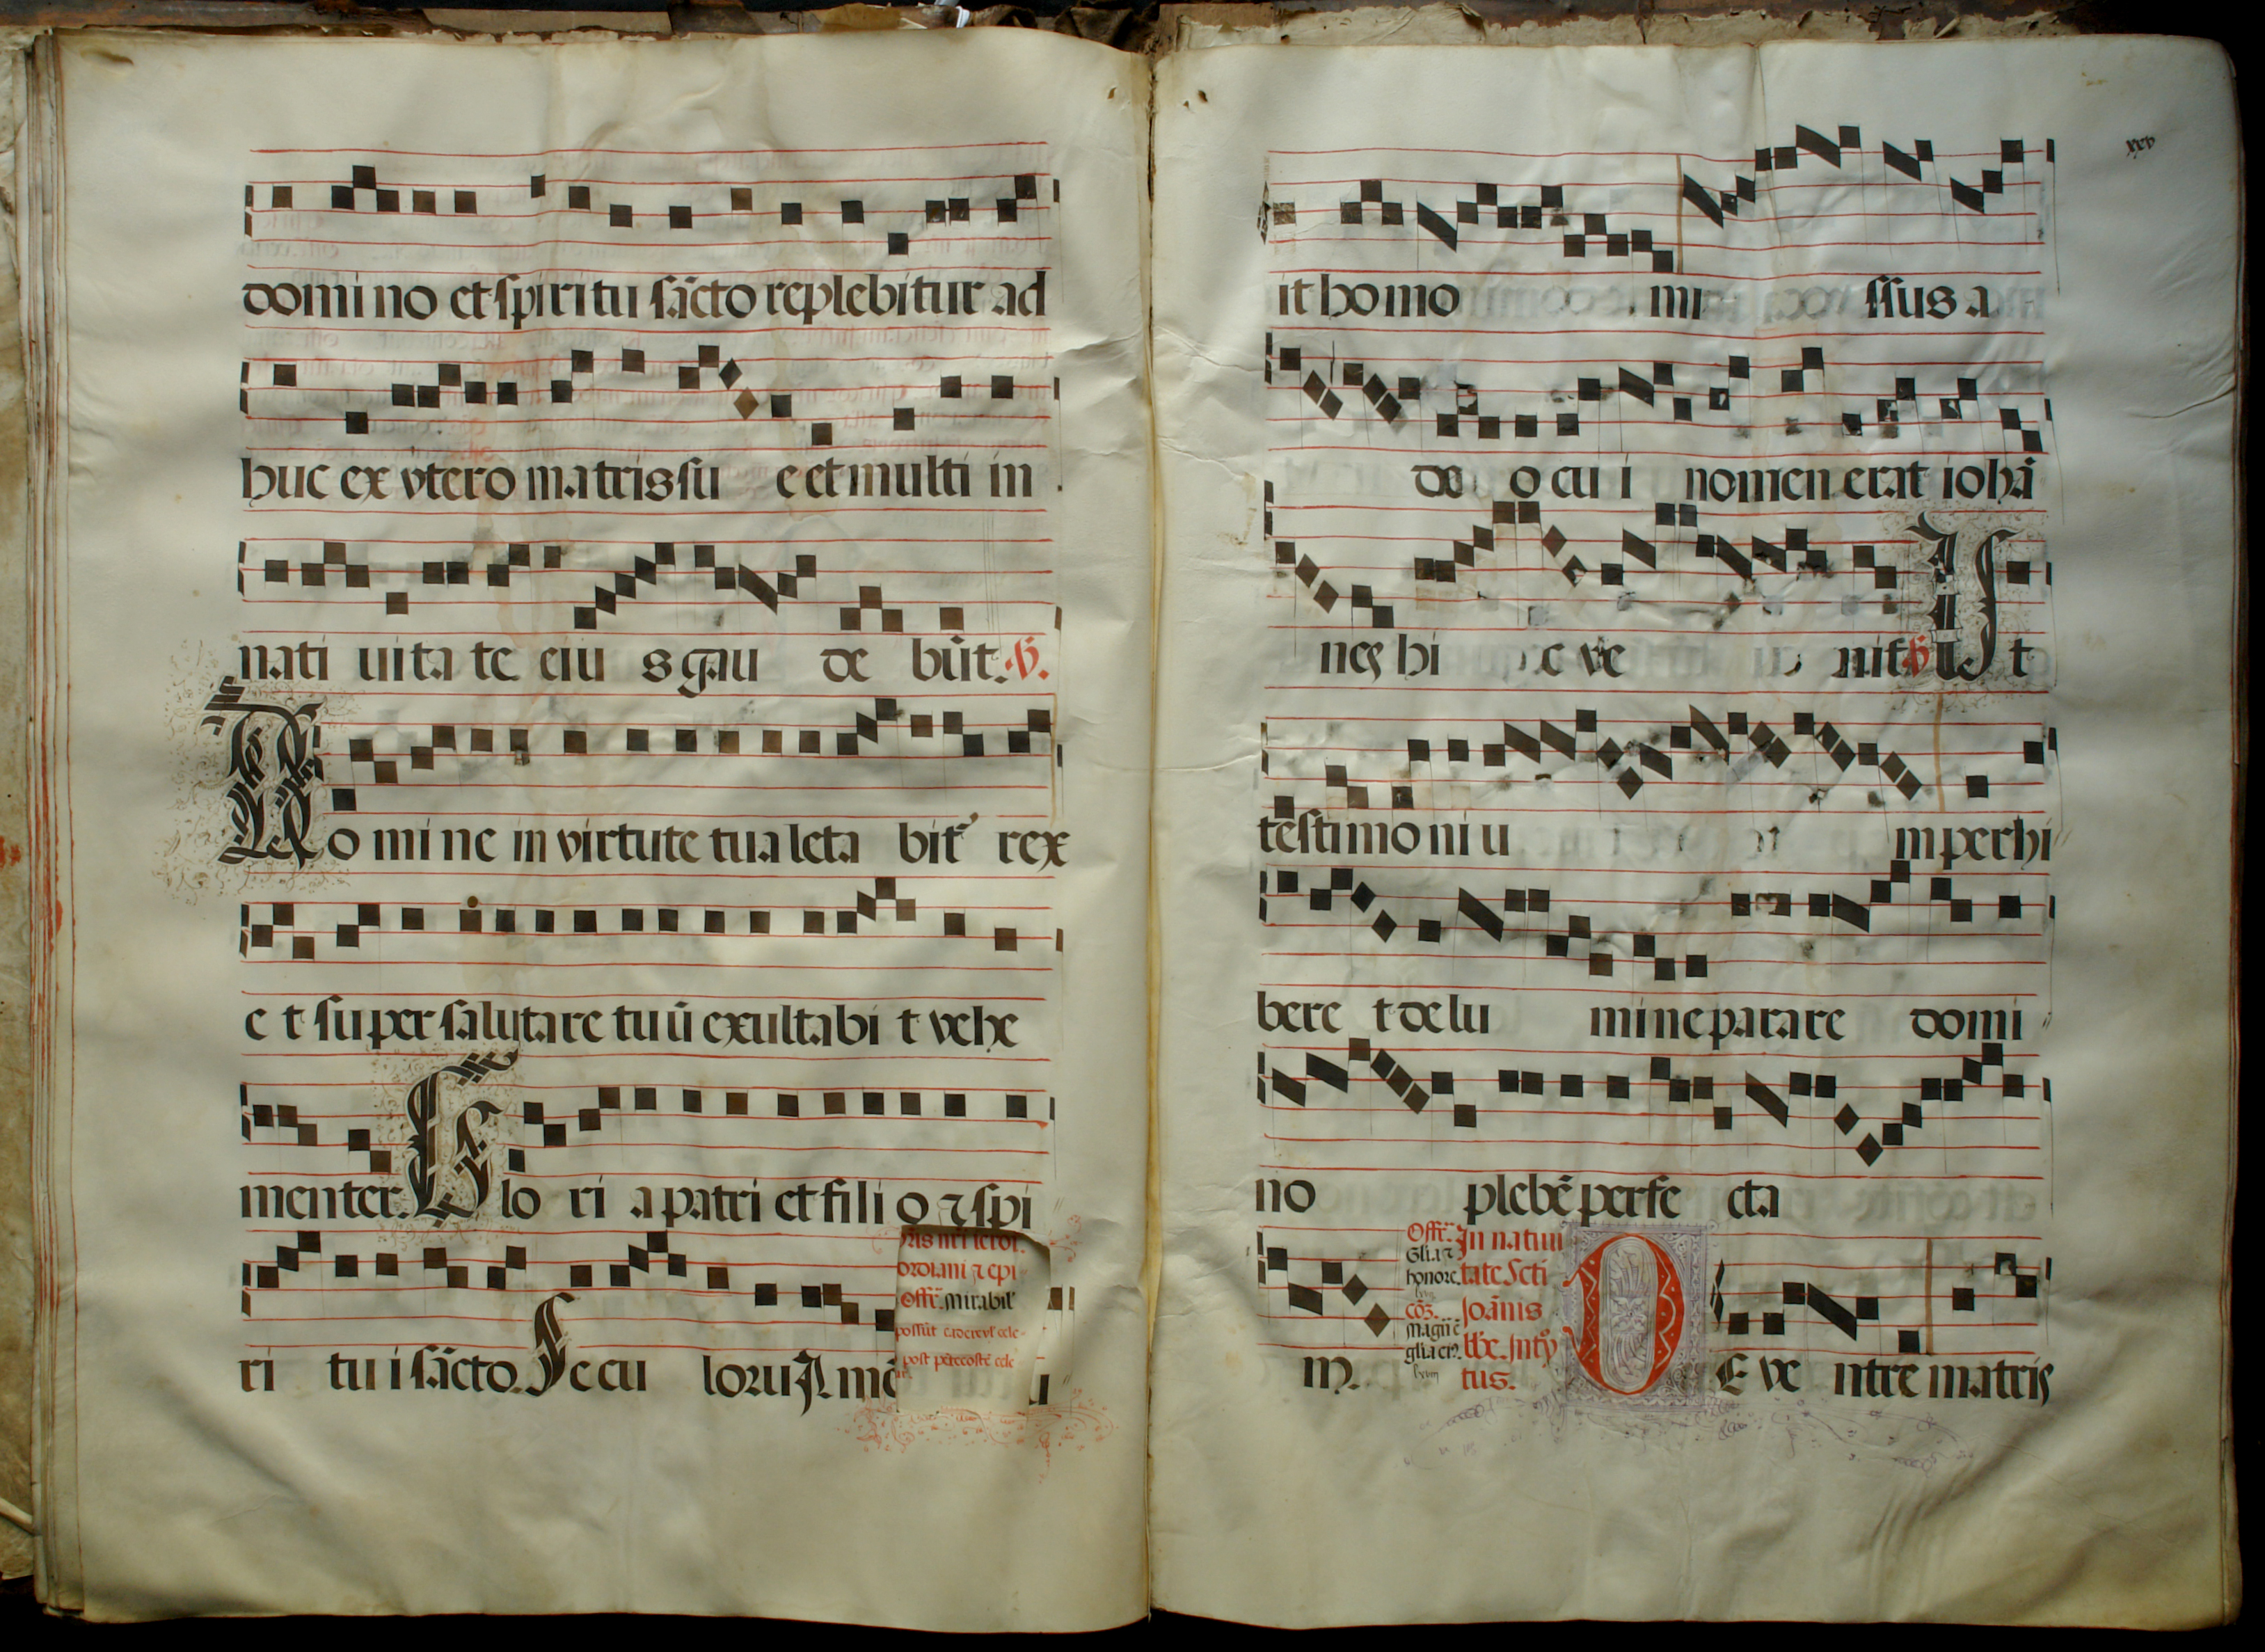 domi no et spiritu sācto replebitur ad
huc ex vtero matris su e et multi in
nati uita te eiu s gau de būt.
Do mi ne in virtute tua leta bit rex
e t super salutare tuū exultabi t vehe
menter. Glo ri a patri et fili o ⁊ spi
ri tu i sācto. Secu loru
Offr̄. mirabil'
post pētecostē
xxv
it homo mi ssus a
deo o cu i nomen erat iohā
nes hi c ve nit Ut
testimo ni u m perhi
bere t de lu mine parare domi
no plebē perfe cta
m.
Offr̄. Glīa ⁊ honore.
cōō. Magn̄
In natiui
tate Scti
Joānis
tus.
DE ve ntre matris